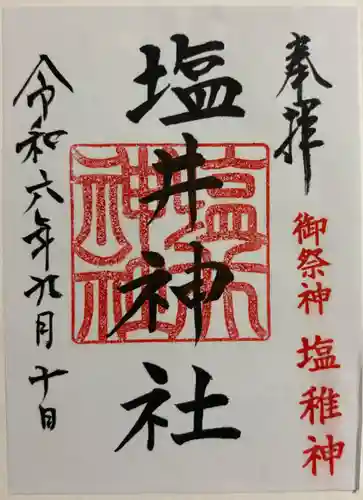 奉拝
御祭神 塩稚神
塩井神社
塩井神社
令和六年九月十日